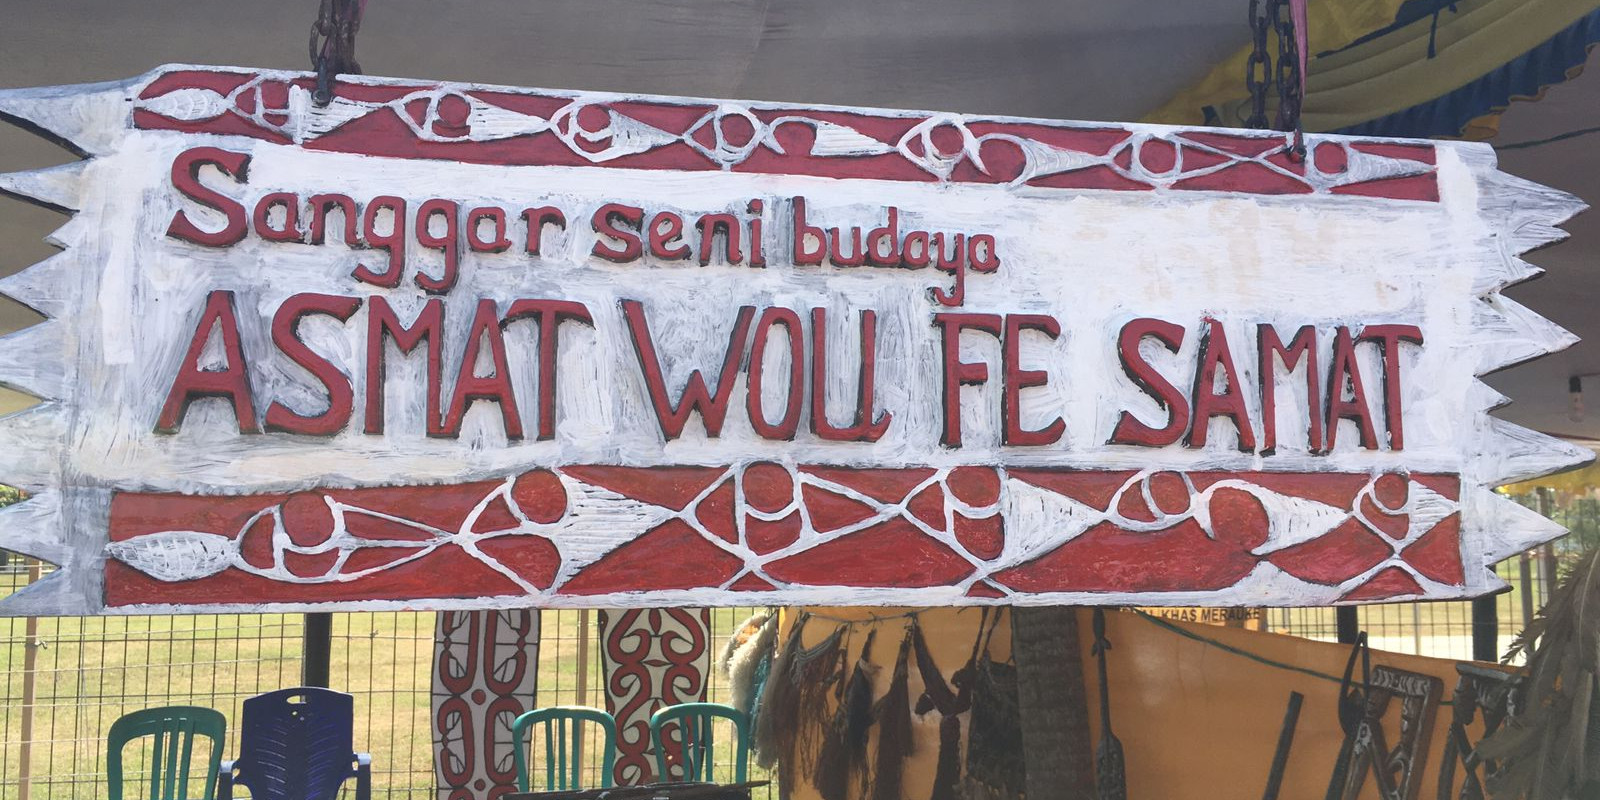 Sanggar seni budaya
ASMAT WOU FE SAMAT
KHAS MERAUKE